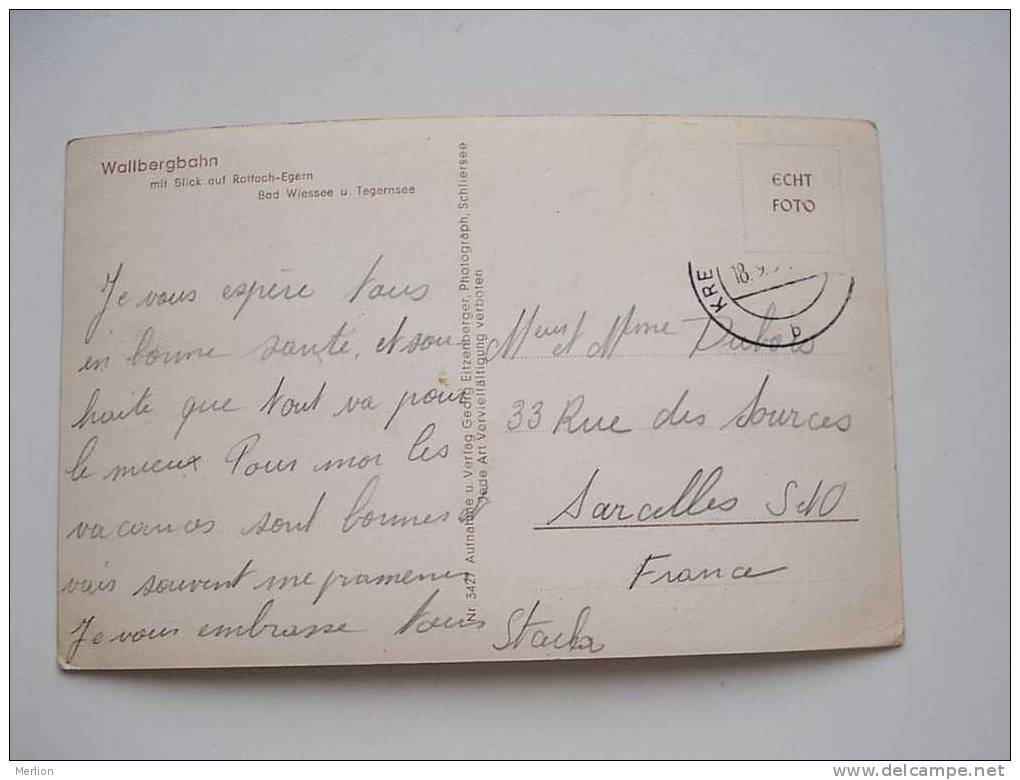 Wallbergbahn
mit Blick auf Rottach-Egern
Bad Wiessee u. Tegernsee
Je vous espère tous
en bonne santé, et sou
haite que tout va pour
le mieux Pour moi les
vacances sont bonnes et
vais souvent me pramener
Je vous embrasse tous
Nr. 3427 Aufnahme u. Verlag Georg Eitzenberger, Photograph, Schliersee
Jede Art Vervielfältigung verboten
ECHT
FOTO
KRE
18.9.
b
et Mme Dubois
33 Rue des Sources
Sarcelles S et O
France
Merlion
delcampe.net